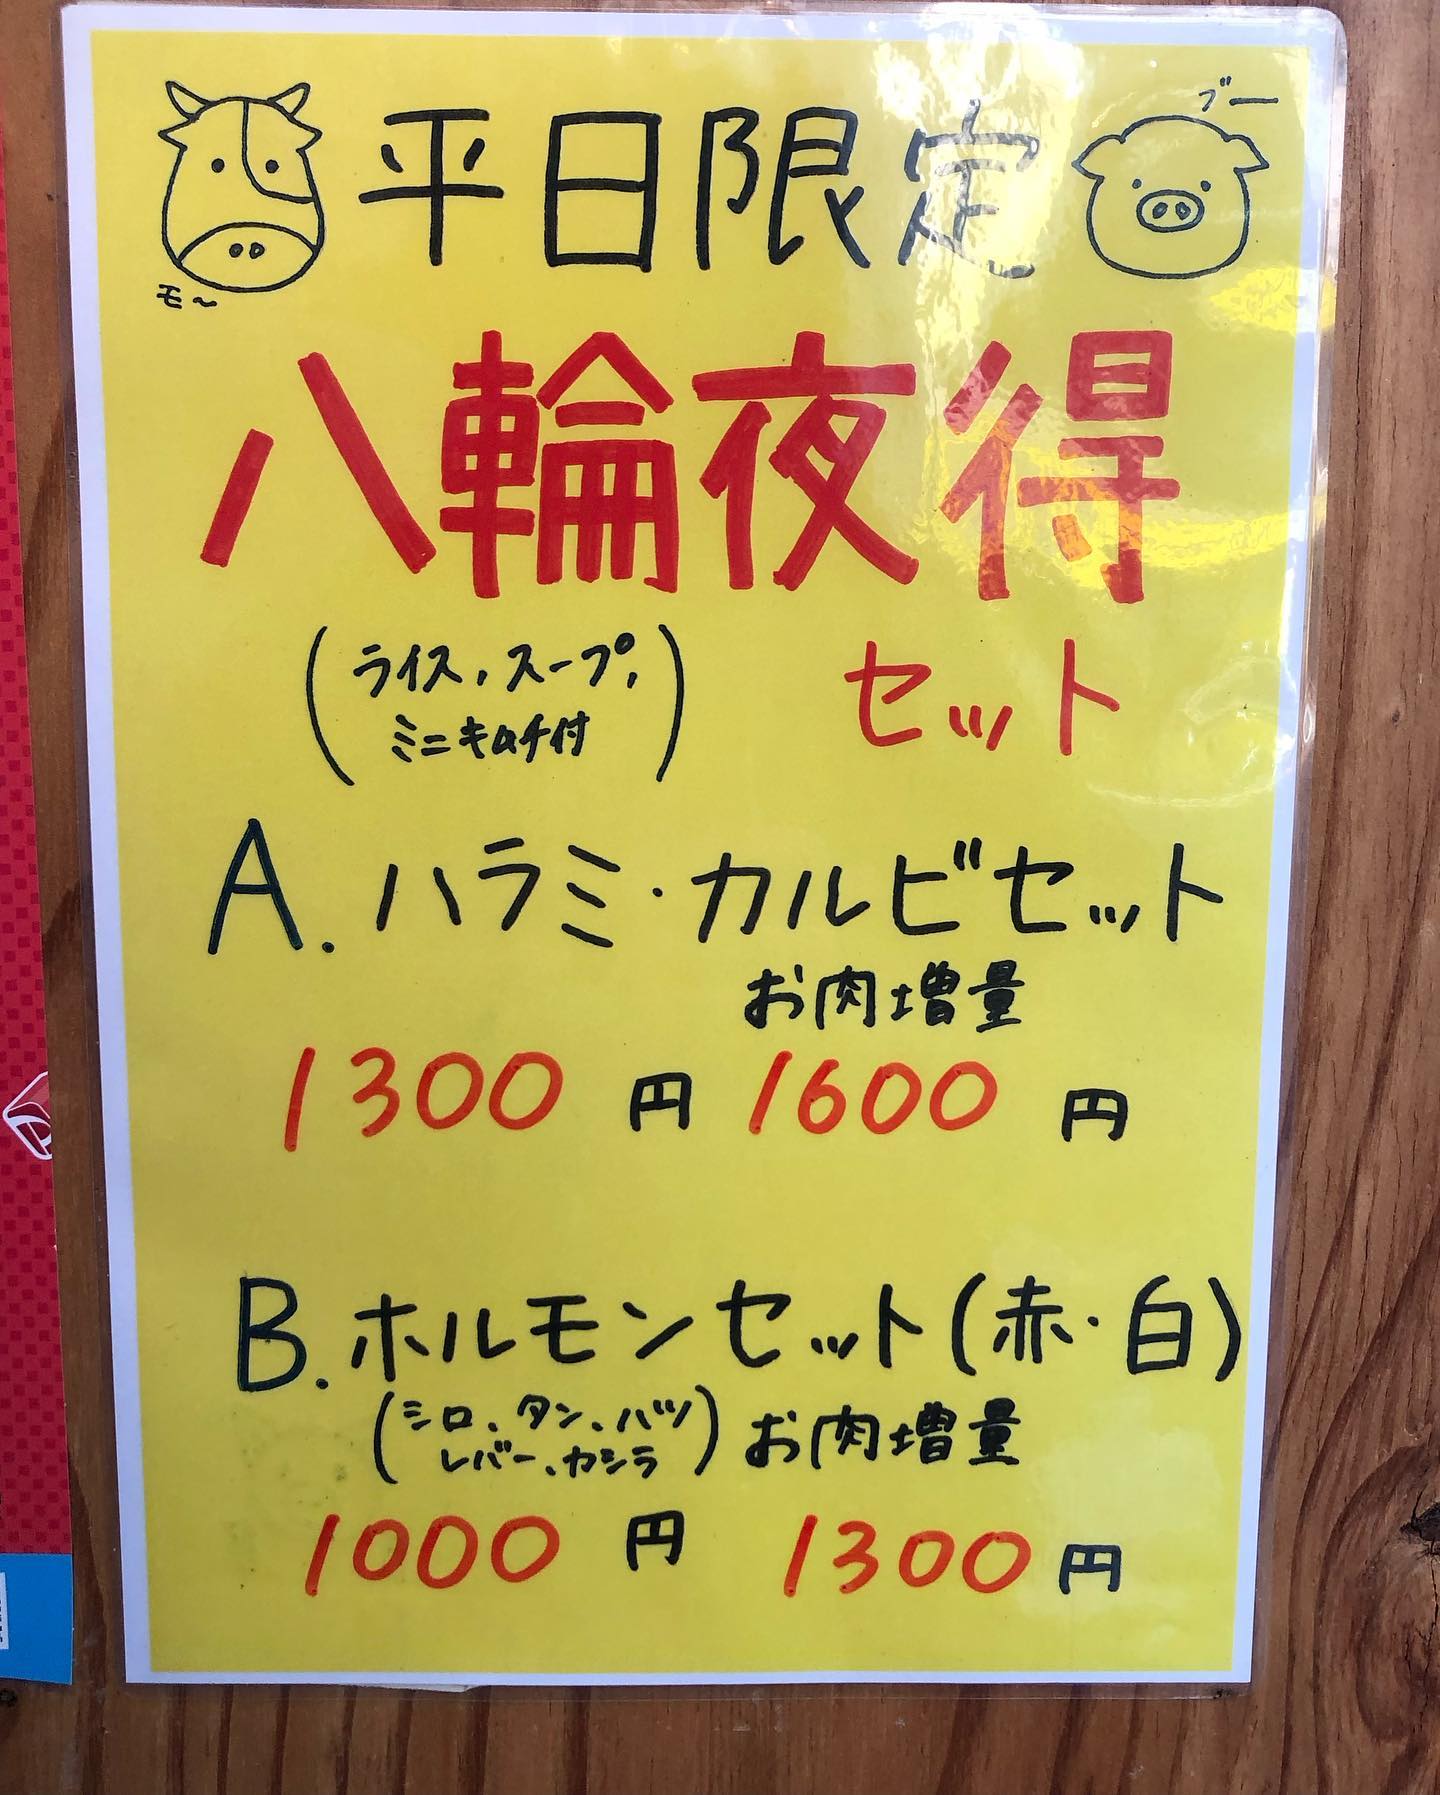 平日限定
ブー
モ〜
八輪夜得
セット
(ライス、スープ、
ミニキムチ付)
A.ハラミ・カルビセット
お肉増量
1300円 1600円
B.ホルモンセット(赤・白)
(シロ、タン、ハツ
レバー、カシラ) お肉増量
1000円 1300円